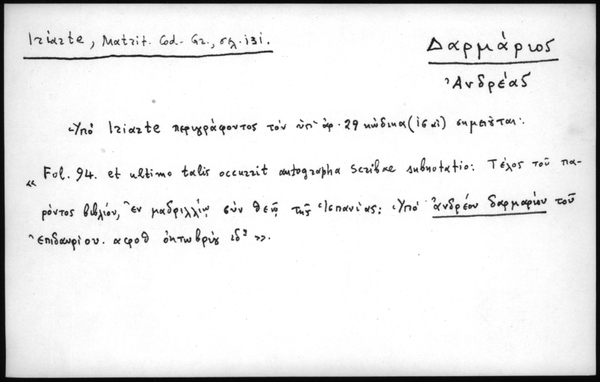 Iriarte, Matrit. Cod. Gr., σελ. 131.
Δαρμάριος
Ἀνδρέας
Ὑπὸ Iriarte περιγράφοντος τὸν ὑπ' ἀρ. 29 κώδικα σημειοῦται:
« Fol. 94. et ultimo talis occurrit autographa Scribae subnotatio: Τέλος τοῦ πα-
ρόντος βιβλίου, ἐν μαδριλλίῳ σὺν θεῷ τῆς Ἱσπανίας: Ὑπὸ ἀνδρέου δαρμαρίου τοῦ
ἐπιδαυρίου. αφοθ ὀκτωβρίῳ ».